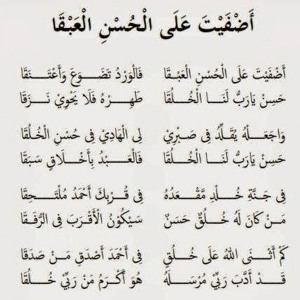 أَضْفَيْتَ عَلَى الْحُسْنِ الْعَبْقَا
أَضْفَيْتَ عَلَى الْحُسْنِ الْعَبَقَا فَالْوَرْدُ تَضَوَّعَ وَاعْتَنَقَا
حَسِّنْ يَارَبُّ لَنَا الْخُلُقَا طَهِّرْهُ فَلَا يَحْوِيْ نَزَقَا
وَاجْعَلْهُ يُقَلِّدُ فِى صَبْرِيْ لِى الْهَادِيْ فِى حُسْنِ الْخُلُقَا
حَسِّنْ يَارَبُّ لَنَا الْخُلُقَا فَالْعَبْدُ بِأَخْلَاقٍ سَبَقَا
فِى جَنَّةِ خُلْدٍ مَقْعَدُهُ فِى قُرْبِكَ أَحْمَدُ مُلْتَحِقَا
مَنْ كَانَ لَهُ خُلُقٌ حَسَنٌ سَيَكُوْنُ الْأَقْرَبَ فِى الرُّفَقَا
كَمْ أَثْنَى اللهُ عَلَى خُلُقٍ فِى أَحْمَدَ أَصْدَقِ مَنْ صَدَقَا
قَدْ أَدَّبَ رَبِّيْ مُرْسَلَهُ هُوَ أَكْرَمُ مَنْ رَبِّيْ خَلَقَا